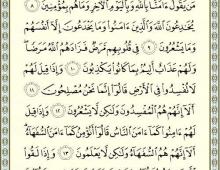 مَن يَقُولُ ءَامَنَّا بِٱللَّهِ وَبِٱلْيَوْمِ ٱلْأَخِرِ وَمَا هُم بِمُؤْمِنِينَ ٨
يُخَٰدِعُونَ ٱللَّهَ وَٱلَّذِينَ ءَامَنُوا۟ وَمَا يَخْدَعُونَ إِلَّآ أَنفُسَهُمْ
وَمَا يَشْعُرُونَ ٩ فِى قُلُوبِهِم مَّرَضٌ فَزَادَهُمُ ٱللَّهُ مَرَضًا
وَلَهُمْ عَذَابٌ أَلِيمٌۢ بِمَا كَانُوا۟ يَكْذِبُونَ ١٠ وَإِذَا قِيلَ لَهُمْ
لَا تُفْسِدُوا۟ فِى ٱلْأَرْضِ قَالُوٓا۟ إِنَّمَا نَحْنُ مُصْلِحُونَ ١١
أَلَآ إِنَّهُمْ هُمُ ٱلْمُفْسِدُونَ وَلَٰكِن لَّا يَشْعُرُونَ ١٢ وَإِذَا قِيلَ
لَهُمْ ءَامِنُوا۟ كَمَآ ءَامَنَ ٱلنَّاسُ قَالُوٓا۟ أَنُؤْمِنُ كَمَآ ءَامَنَ ٱلسُّفَهَآءُ
أَلَآ إِنَّهُمْ هُمُ ٱلسُّفَهَآءُ وَلَٰكِن لَّا يَعْلَمُونَ ١٣ وَإِذَا لَقُوا۟